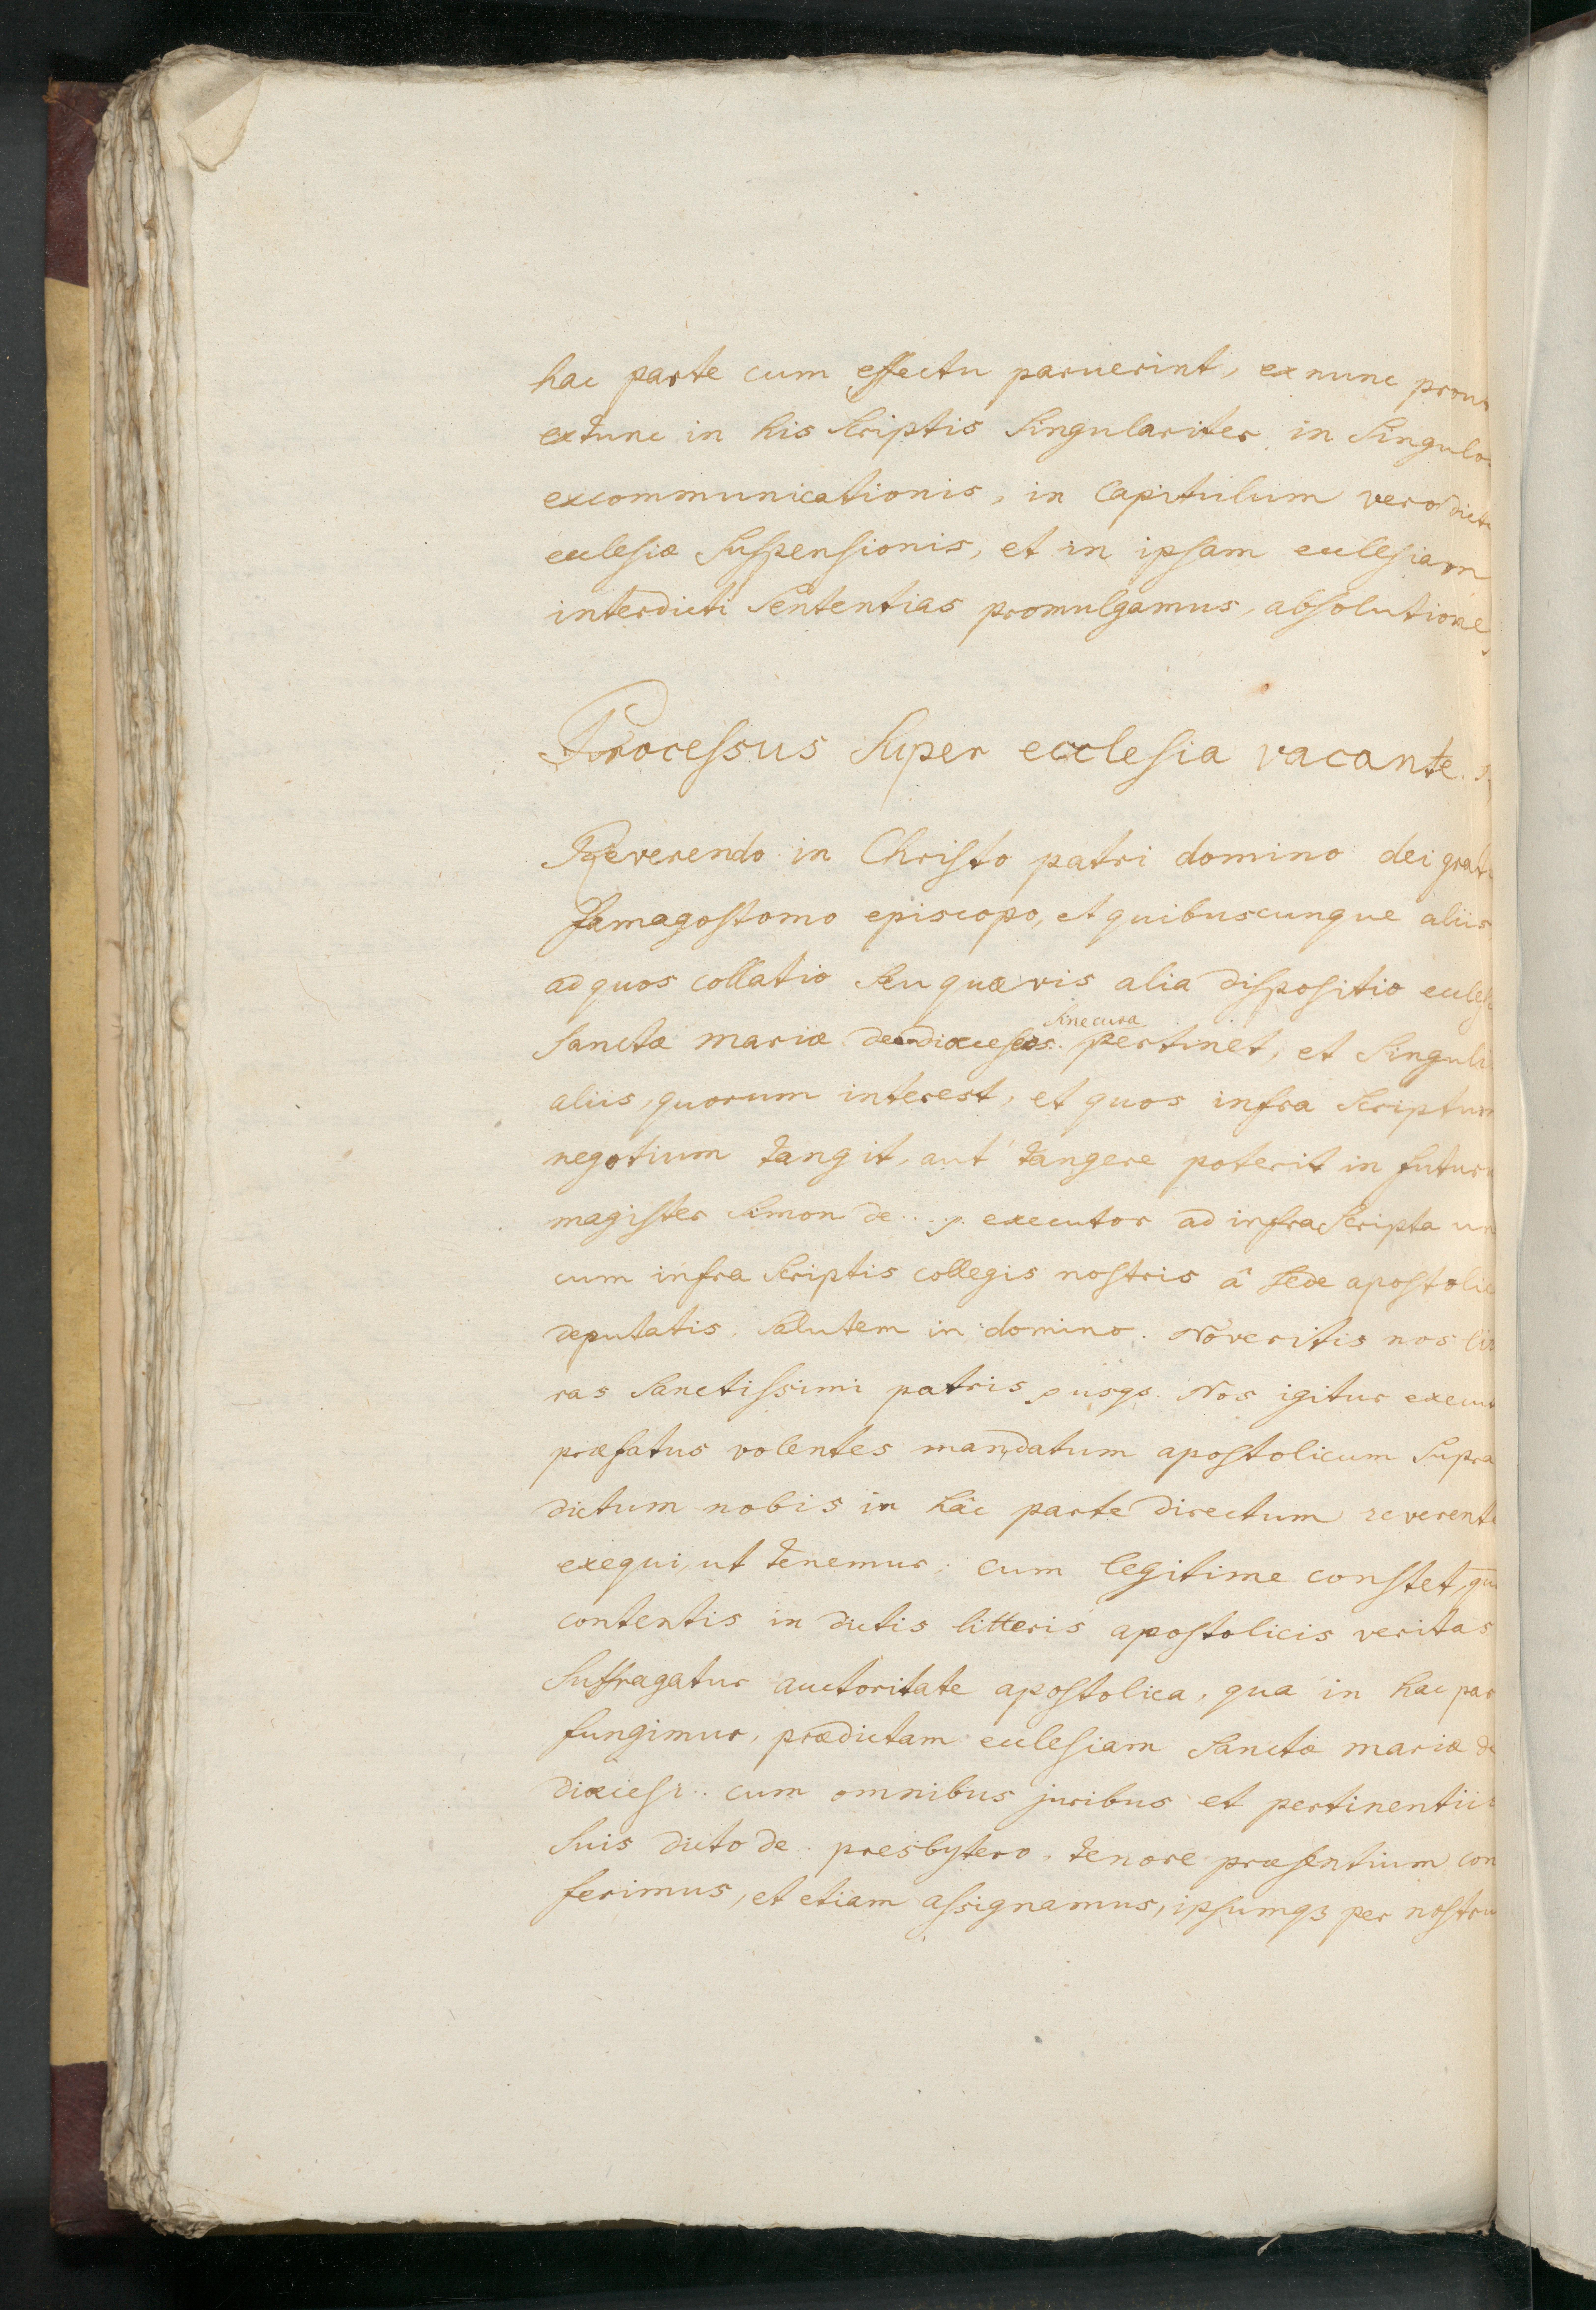 hac parte cum effectu paruerint, ex nunc prout
extunc in his scriptis singulariter in singulos
excommunicationis, in capitulum vero dictæ
ecclesiæ suspensionis, et in ipsam ecclesiam
interdicti sententias promulgamus, absolutione
Processus super ecclesia vacante.
Reverendo in Christo patri domino dei grati
famagostomo episcopo, et quibuscunque aliis
ad quos collatio seu quævis alia dispositio eccles
sine cura
sanctæ mariæ de diœceseos.. pertinet, et singuli
aliis, quorum interest, et quos infra scriptum
negotium tangit, aut tangere poterit in futuru
magister simon de .... executor ad infrascripta un
cum infra scriptis collegis nostris â sede apostolic
deputatis. salutem in domino. Noveritis nos lit
ras sanctissimi patris usqs. Nos igitur execut
præfatus volentes mandatum apostolicum supra
dictum nobis in hâc parte directum reverente
exequi, ut tenemur; cum legitime constet, qu
contentis in dictis litteris apostolicis veritas
suffragatur auctoritate apostolica, qua in hac par
fungimur, prædictam ecclesiam sanctæ mariæ de
diœcesi.. cum omnibus juribus et pertinentiis
suis dicto de.. presbytero, tenore præsentium con
ferimus, et etiam assignamus, ipsumq3 per nostru